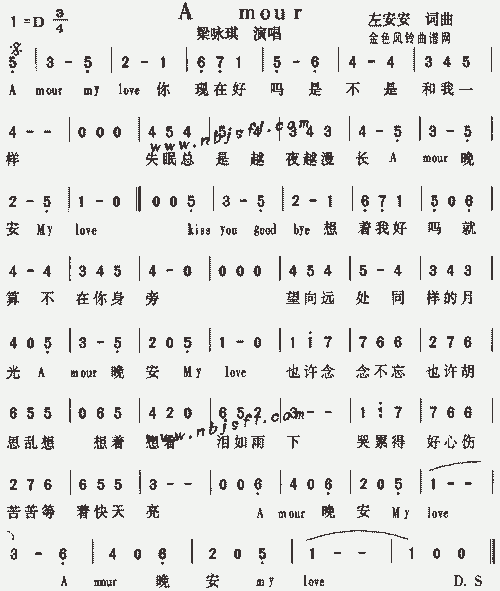 A mour
1=D 3/4
左安安 词曲
梁咏琪 演唱
金色风铃曲谱网
5 | 3 - 5 | 2 - 1 | 6 7 1 | 5 - 5 | 4 - 5 | 3 4 5 |
A mour my love 你 现在好 吗 是 不 是 和我一
4 - - | 0 0 0 | 4 5 4 | 5 - 4 | 3 4 3 | 4 - 5 | 3 - 5 |
www.nbjsfl.com
样 失眠总 是 越 夜越漫 长 A mour 晚
2 - 5 | 1 - 0 || 0 0 5 | 3 - 5 | 2 - 1 | 6 7 1 | 5 0 6 |
安 My love kiss you good bye 想 着我好 吗 就
4 - 4 | 3 4 5 | 4 - 0 | 0 0 0 | 4 5 4 | 5 - 4 | 3 4 3 |
算 不 在你身 旁 望向远 处 同 样的月
4 0 5 | 3 - 5 | 2 0 5 | 1 - 0 | 1 1 7 | 7 6 6 | 2 7 6 |
光 A mour 晚 安 My love 也许念 念不忘 也许胡
6 5 5 | 0 6 5 | 4 2 0 | 6 5 2 | 3 - - | 1 1 7 | 7 6 6 |
www.nbjsfl.com
思乱想 想着 想着 泪如雨 下 哭累得 好心伤
2 7 6 | 6 5 5 | 3 - - | 0 0 6 | 4 0 6 | 2 0 5 | 1 - - |
苦苦等 着快天 亮 A mour 晚 安 My love
3 - 6 | 4 0 6 | 2 0 5 | 1 - - | 1 - - | 0 0 0 ||
A mour 晚 安 my love D. S